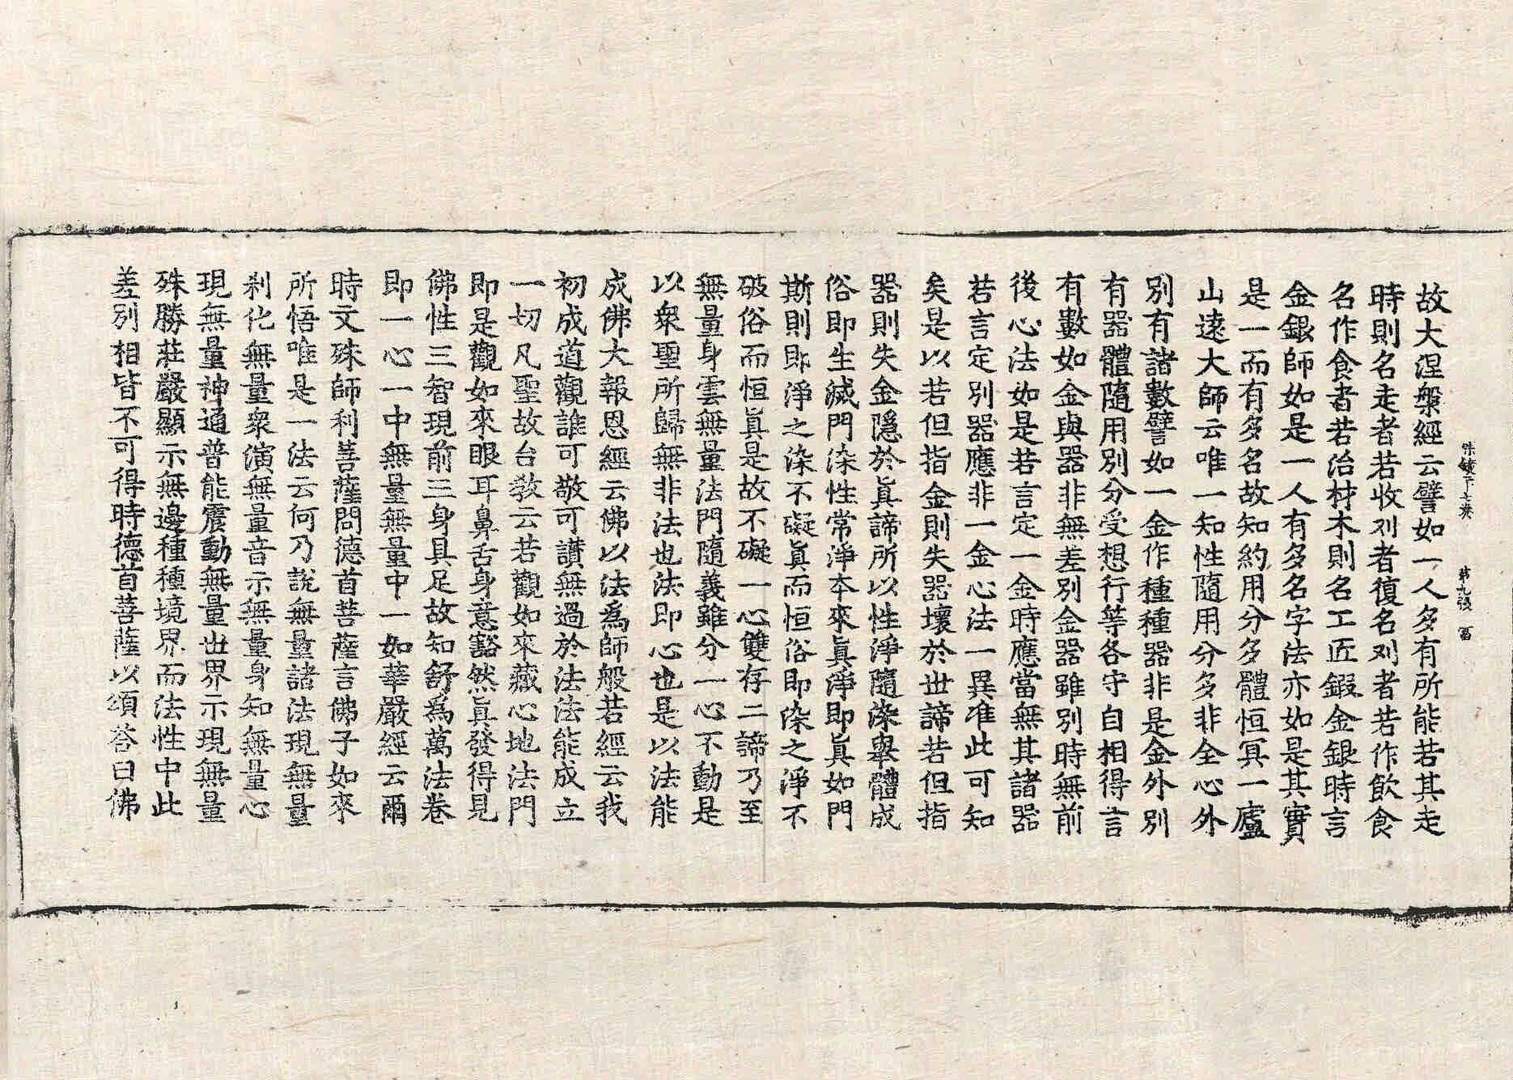 故大涅槃經云譬如一人多有所能若其走
時則名走者若收刈者復名刈者若作飲食
名作食者若治材木則名工匠鍛金銀時言
金銀師如是一人有多名字法亦如是其實
是一而有多名故知約用分多體恒冥一廬
山遠大師云唯一知性隨用分多非全心外
別有諸數譬如一金作種種器非是金外別
有器體隨用別分受想行等各守自相得言
有數如金與器非無差別金器雖別時無前
後心法如是若言定一金時應當無其諸器
若言定別器應非一金心法一異准此可知
矣是以若但指金則失器壞於世諦若但指
器則失金隱於眞諦所以性淨隨染舉體成
俗即生滅門染性常淨本來眞淨即眞如門
斯則即淨之染不礙眞而恒俗即染之淨不
破俗而恒眞是故不礙一心雙存二諦乃至
無量身雲無量法門隨義雖分一心不動是
以衆聖所歸無非法也法即心也是以法能
成佛大報恩經云佛以法爲師般若經云我
初成道觀誰可敬可讃無過於法法能成立
一切凡聖故台教云若觀如來藏心地法門
即是觀如來眼耳鼻舌身意豁然眞發得見
佛性三智現前三身具足故知舒爲萬法卷
即一心一中無量無量中一如華嚴經云爾
時文殊師利菩薩問德首菩薩言佛子如來
所悟唯是一法云何乃說無量諸法現無量
刹化無量衆演無量音示無量身知無量心
現無量神通普能震動無量世界示現無量
殊勝莊嚴顯示無邊種種境界而法性中此
差別相皆不可得時德首菩薩以頌荅曰佛
第九張